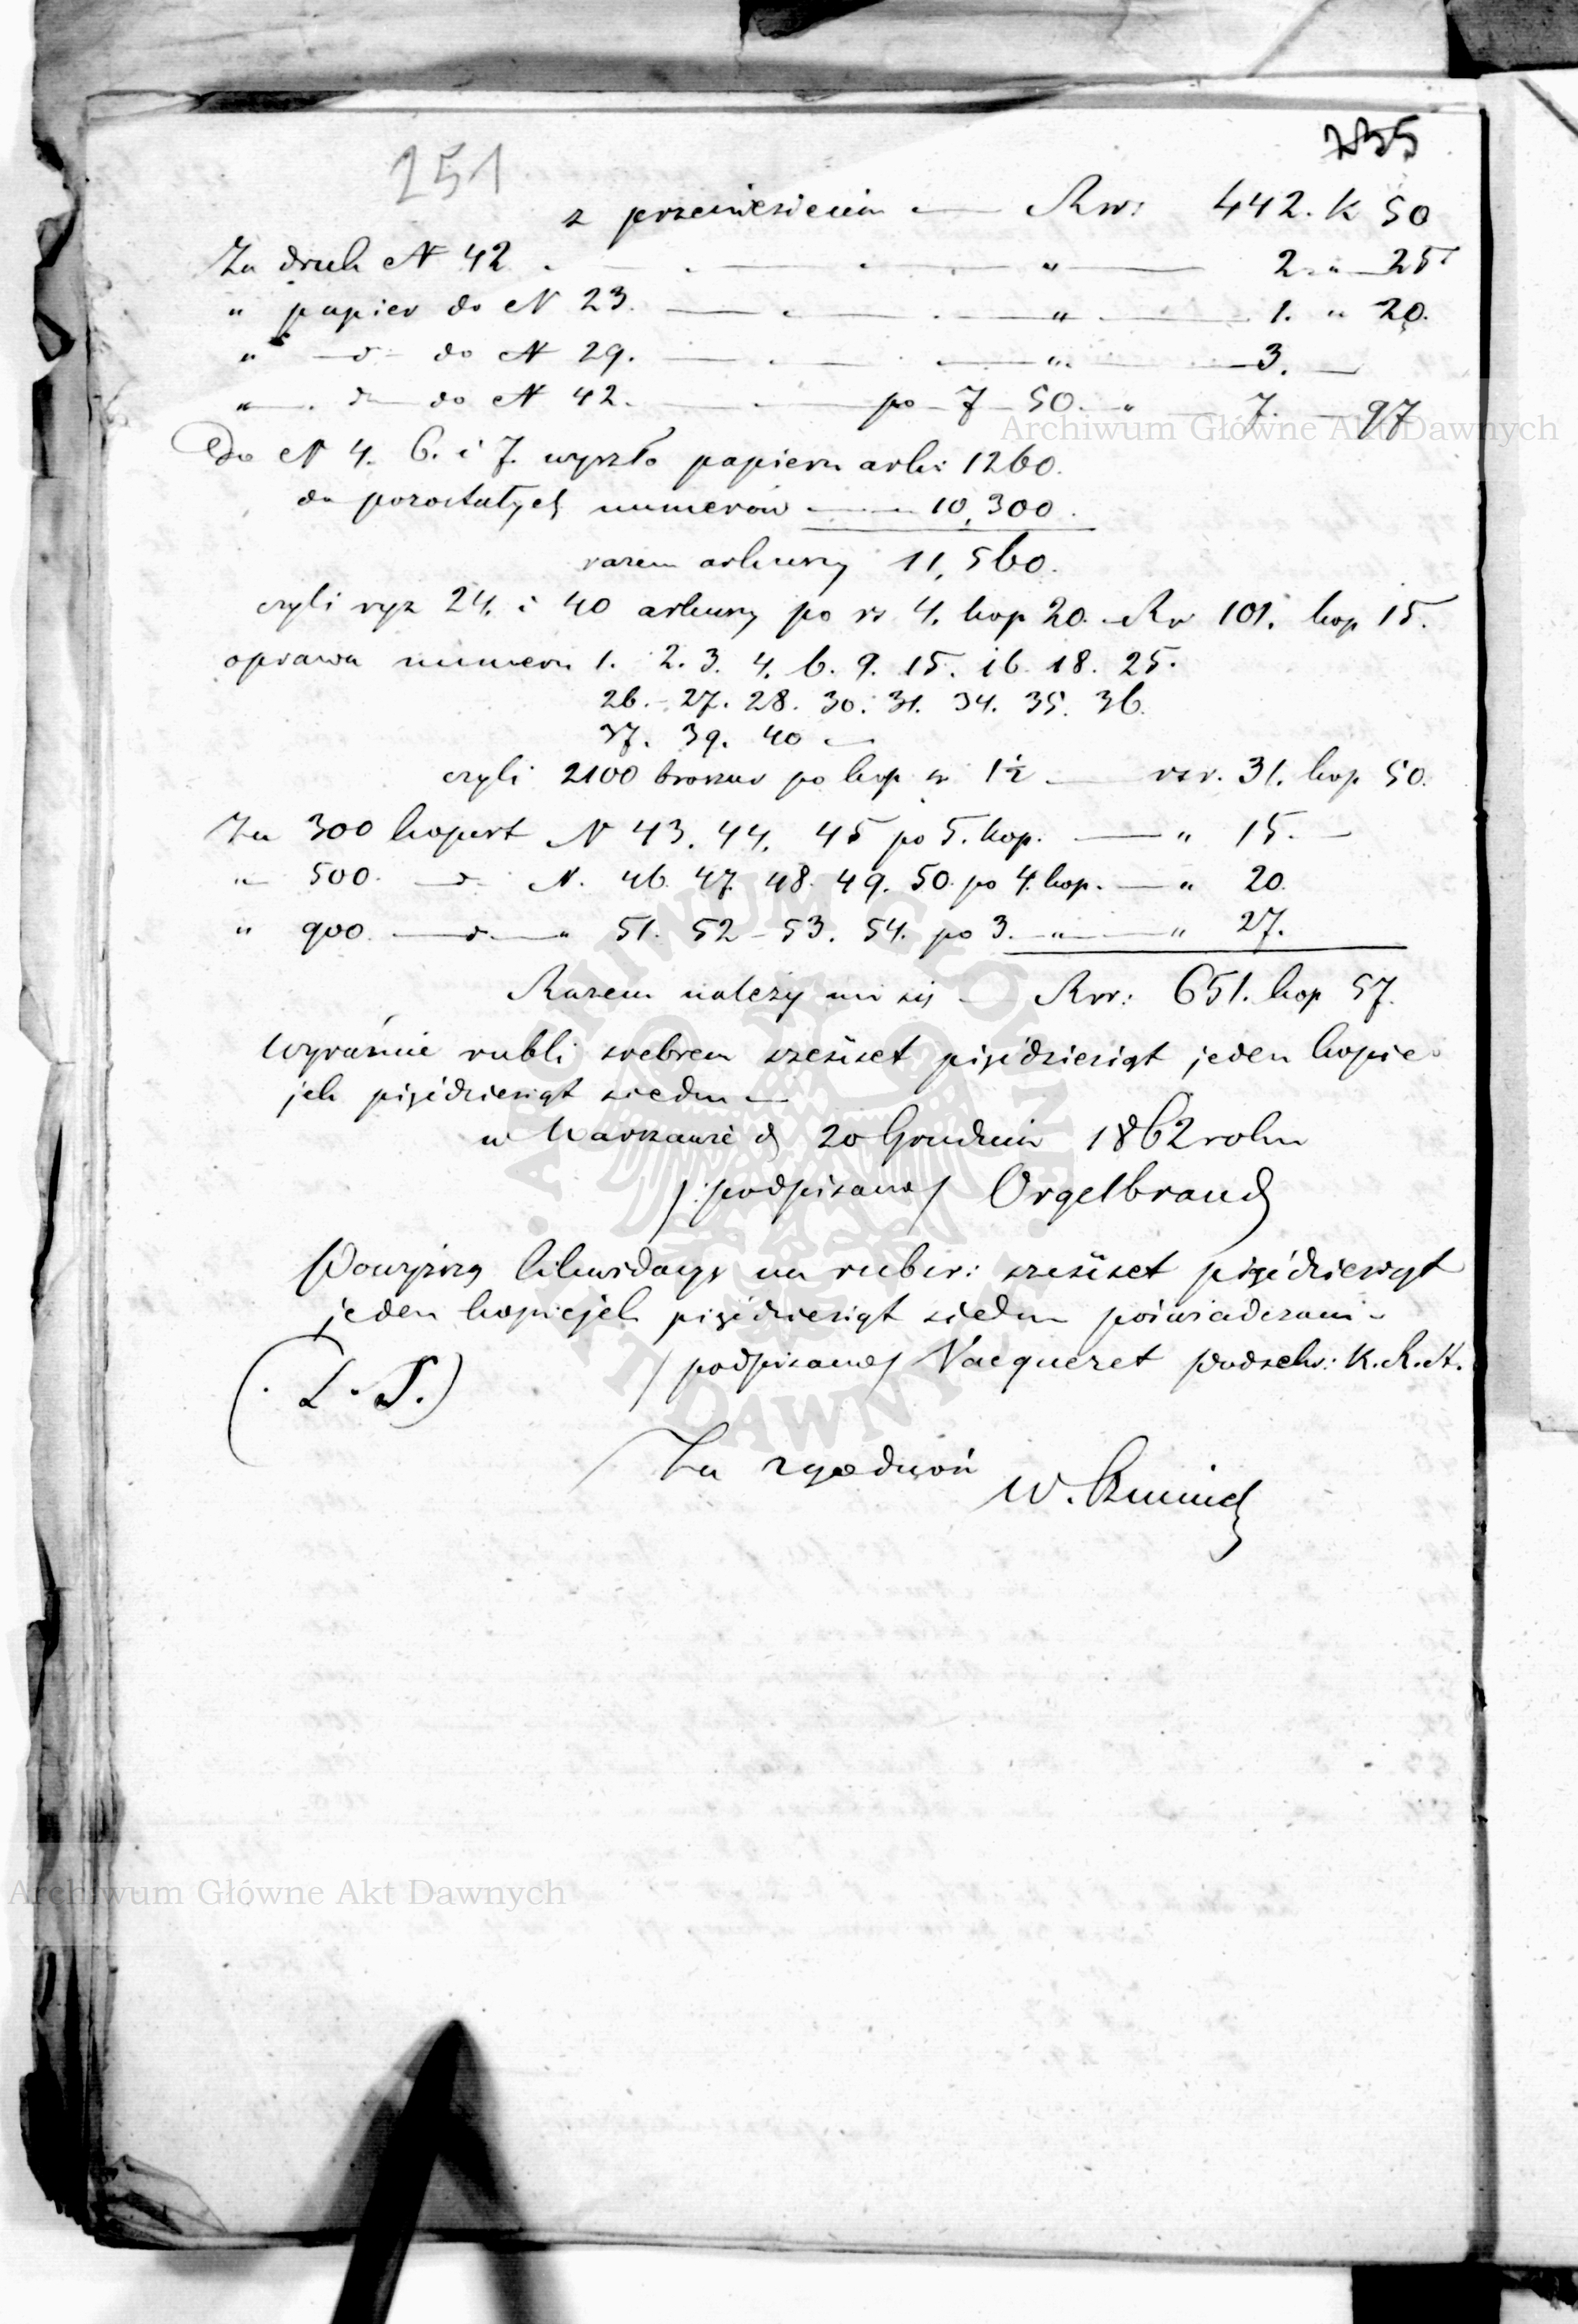 251
z przeniesienia — Rsr: 442. k 50
Za druk N 42 . — . — . — . " — 2. " 25
" papier do N 23. — . — . — " — 1. " 20.
" — d — do N 29. — . — . — " — 3. —
" — d — do N 42. — . — po 7 50. " — 7. — 97
Do N 4. 6. i 7. wyszło papieru ark: 1260.
do pozostałych numerów — 10,300.
razem arkuszy 11,560.
czyli ryz 24. i 40 arkuszy po rs 4. kop 20. Rsr 101. kop 15.
oprawa numeru 1. 2. 3. 4. 6. 9. 15. 16. 18. 25.
26. 27. 28. 30. 31. 34. 35. 36.
37. 39. 40 —
czyli 2100 broszur po kop sr 1½ — rsr. 31. kop 50.
Za 300 kopert N 43. 44. 45 po 5. kop. — " 15. —
" 500. — d — N. 46. 47. 48. 49. 50. po 4. kop. — " 20.
" 900. — d — " 51. 52 – 53. 54. po 3. " — " 27.
Razem należy mi się — Rsr: 651. kop 57.
wyraźnie rubli srebrem sześćset pięćdziesiąt jeden kopie-
jek pięćdziesiąt siedm —
w Warszawie d 20 Grudnia 1862 roku
/: podpisano/ Orgelbrand
Powyższą likwidacyę na rubsr: sześćset pięćdziesiąt
jeden kopiejek pięćdziesiąt siedm poświadczam.
/ podpisano/ Vacqueret Podsek: K. R. H.
(. L. S.)
Za zgodność
W.
Archiwum Główne Akt Dawnych
Archiwum Główne Akt Dawnych
ARCHIWUM GŁÓWNE AKT DAWNYCH